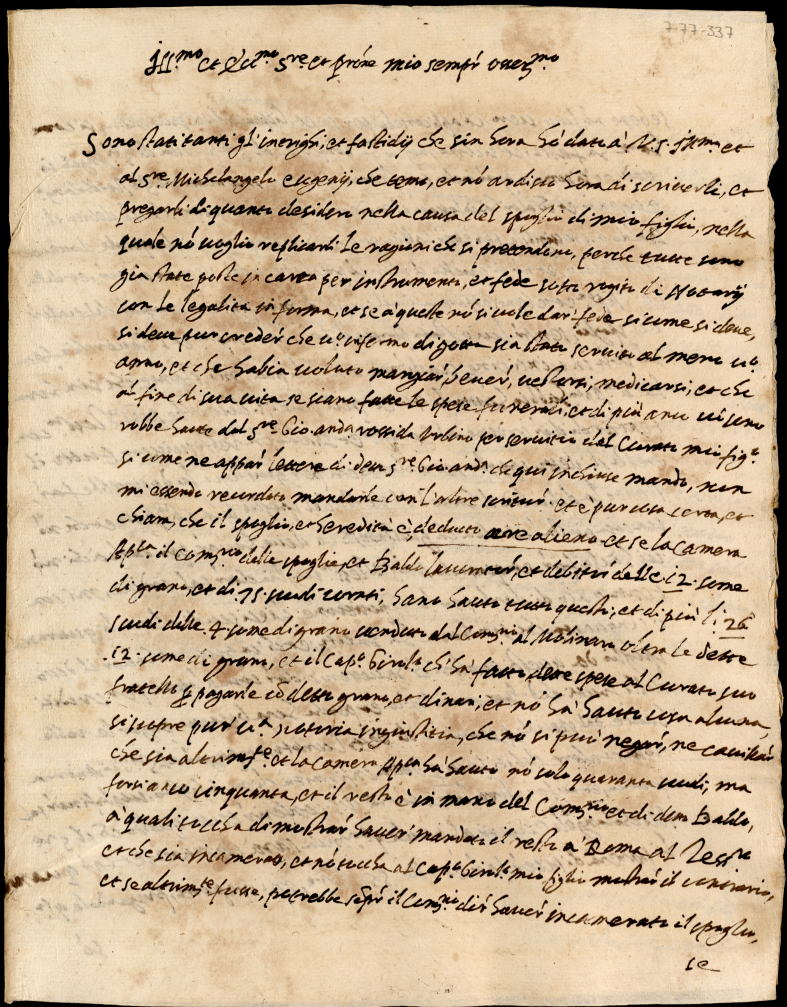 7-77-337
Ill.mo et Ecc.mo S.re et prone mio sempr osser.mo
Sono stati tanti gl'intrighi, et fastidij che sin hora hò dati à V.S. Ill.ma et
al S.re Michelangelo eugenij, che temo, et nó ardisco hora di scriverli, et
pregarli di quanto desidero nella causa del spoglio di mio figlio, nella
quale nó voglio replicarli le ragioni che si pretendono, perche tutte sono
gia state poste in carta per instrumenti, et fede sotto rogito di Notarij
con le legalita in forma, et se à queste nó si vole dar fede si come si deve,
si deve pur creder che u.o infermo di gotta sia stato servito al meno u.o
anno, et che habia voluto mangiar, bever, vestirsi, medicarsi, et che
al fine di sua vita se siano fatte le spese funerali, et di più anco vi sono
robbe haute dal S.re Gio. and.a rossi da Urbino per servitio del Curato mio fig.o
si come ne appar lettere di detto S.re Gio. and.a che qui incluse mando, non
mi essendo recordato mandarle con l'altre scritture et è pur cosa certa, et
chiara, che il spoglio, et heredità è, deducto aere alieno et se la Camera
Ap.ca il Com.rio delle spoglie, et Baldo lavorator, et debitor delle 12. some
di grano, et di 75 scudi corati, hano hauto tutto questo, et di più li 26
scudi delle 4. some di grano venduto dal Com.rio al Molinaro oltra le dette
12. some di grano, et il Cap.o Girol.o ch'hà fatto dette spese al Curato suo
fratello p pagarle cõ detto grano, et dinari, et nó hà hauto cosa alcuna,
si scopre pur u.a notoria ingiustitia, che nó si può negar, ne cavillar
che sia altrim.te et la Camera Ap.ca hà hauto nó solo quaranta scudi, ma
forsi anco cinquanta, et il resto è in mano del Com.rio et di detto Baldo,
à quali toccha di mostrar haver mandato il resto à Roma al
et che sia incamerato, et nó toccha al Cap.o Girol.o mio figlio mostrar il contrario,
et se altrim.te fusse, potrebbe sẽpr il Com.rio dir haver incamerato il spoglio,
se